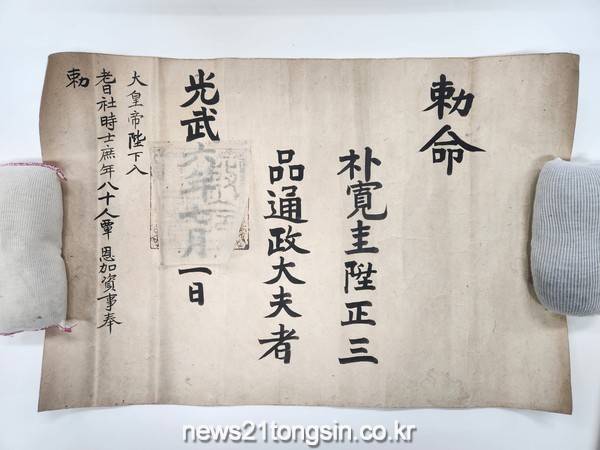 勅命
朴寬圭陞正三
品通政大夫者
光武六年七月一日
大皇帝陛下入
耆社時士庶年八十人覃恩加資事奉
勅
news21tongsin.co.kr